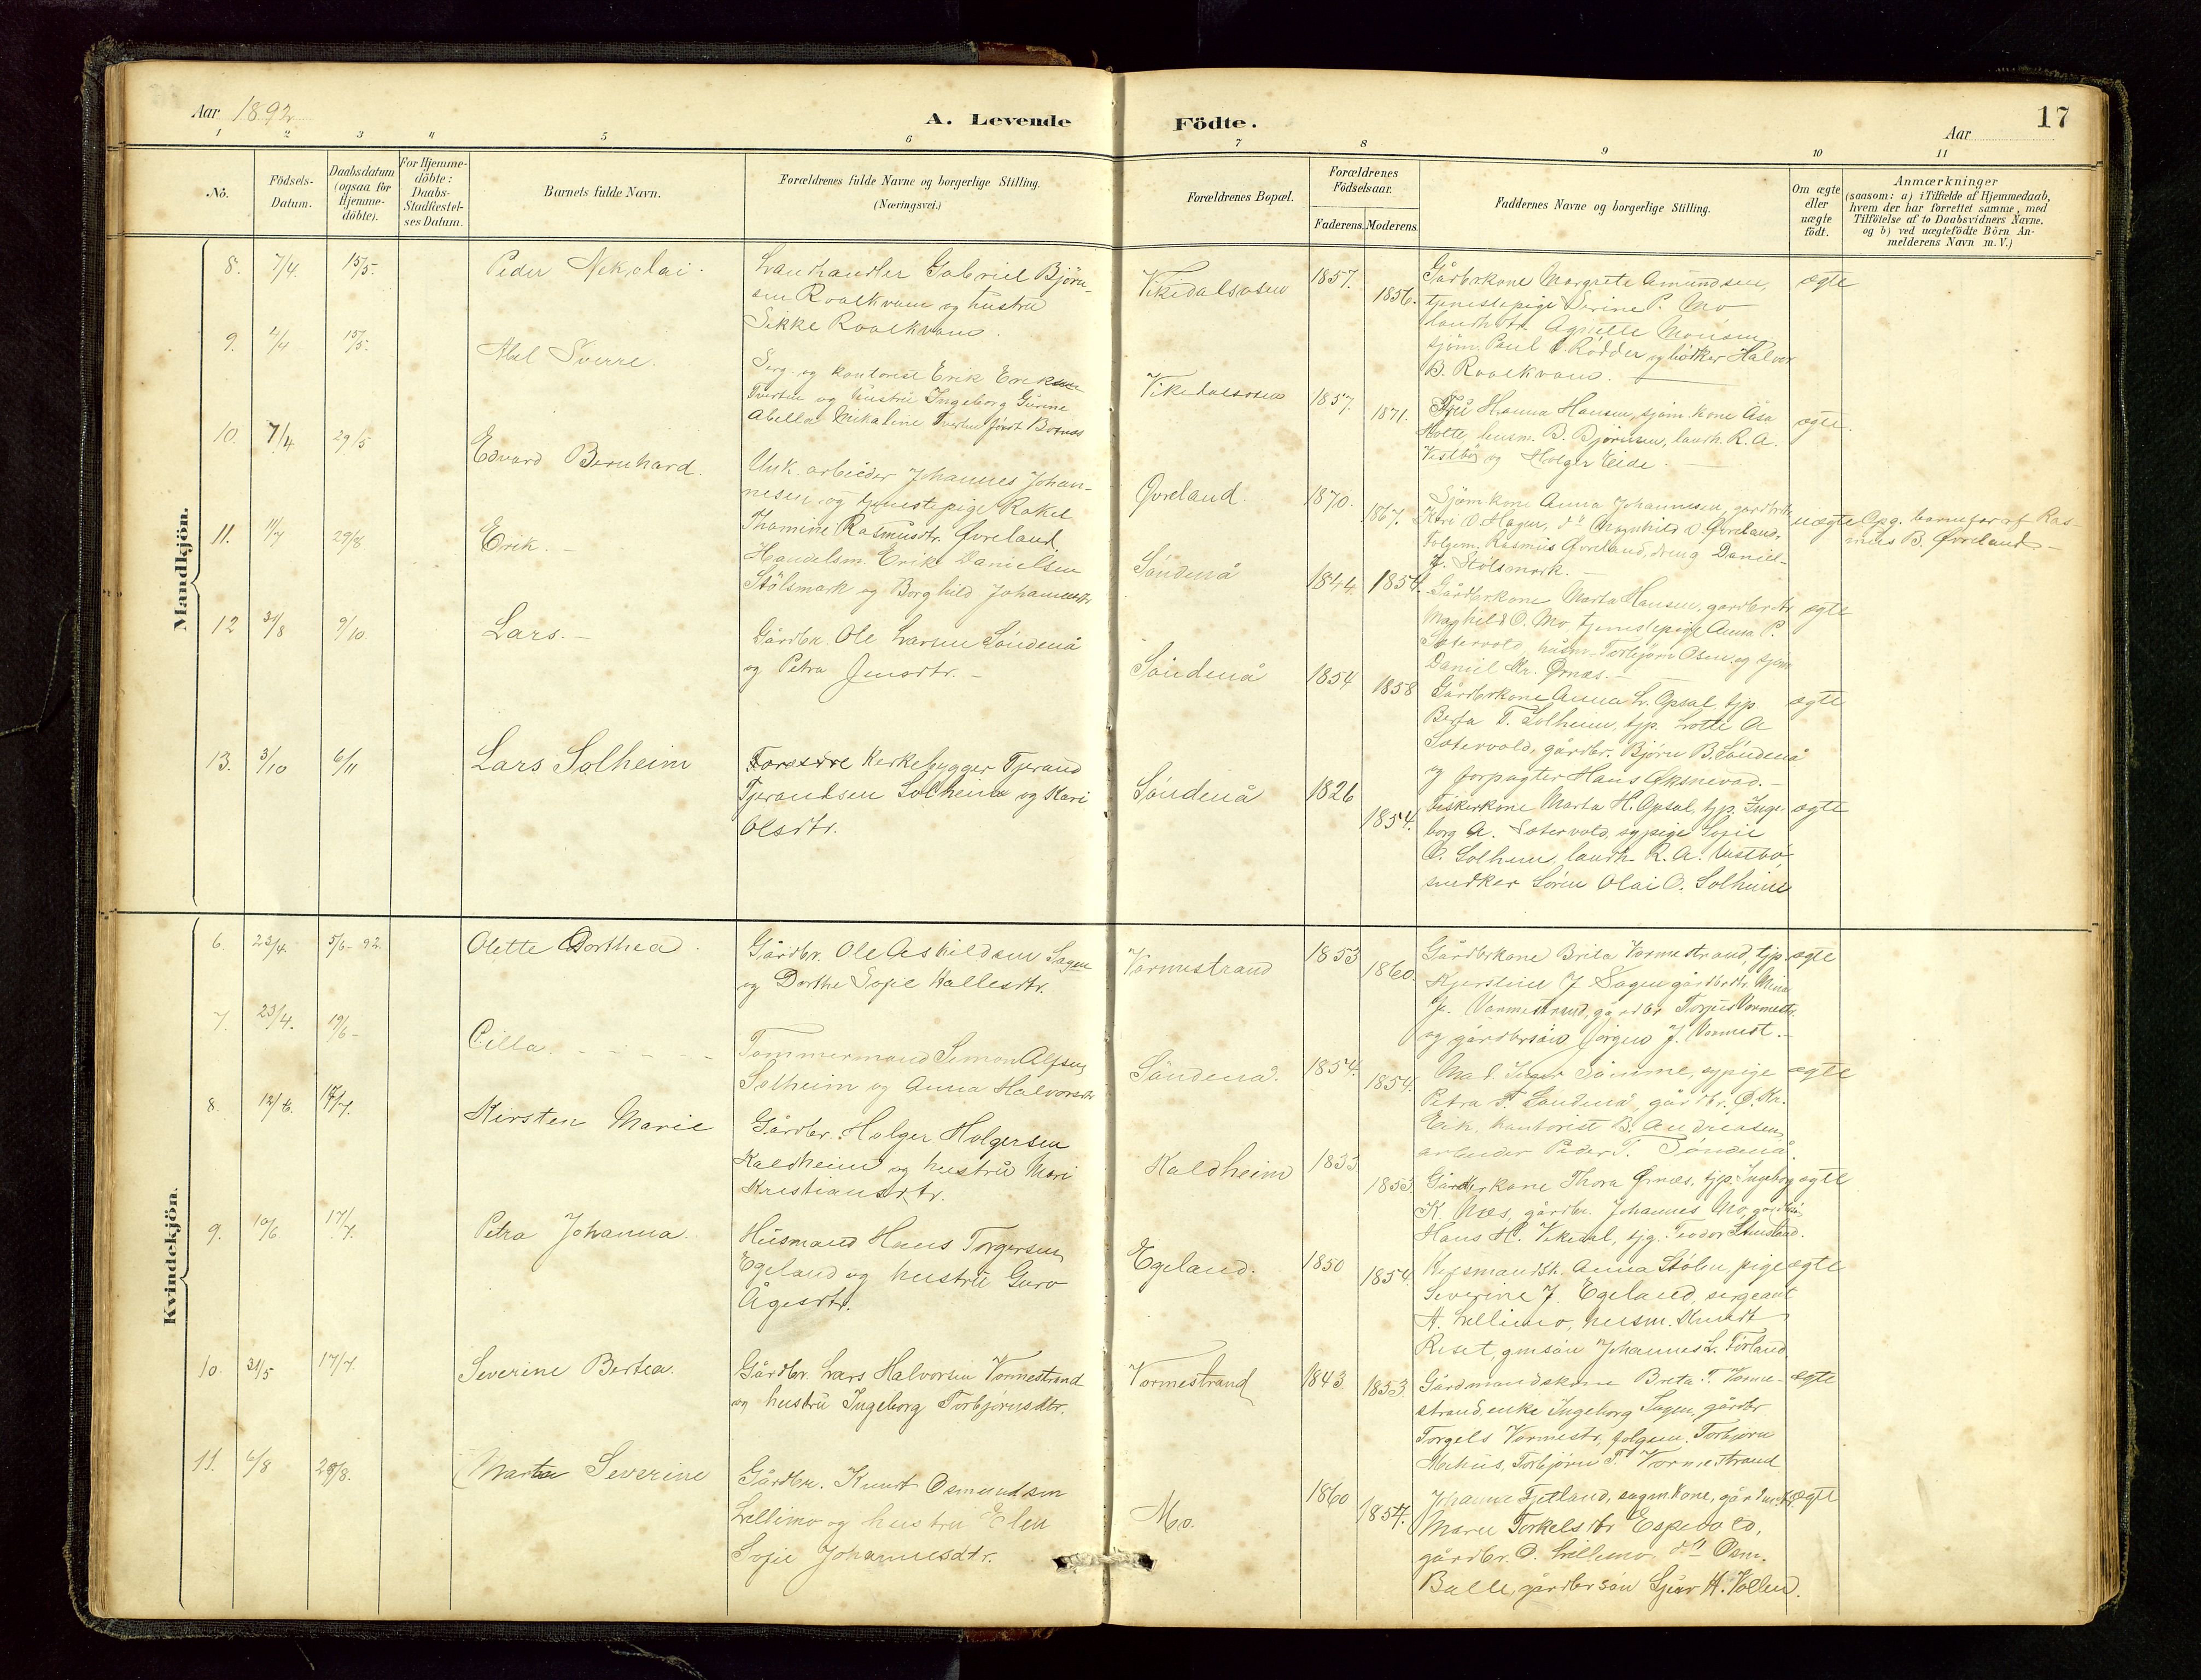 Aar 1892
A. Levende Födte.
Aar
17
1 2 3 4 5 6 7 8 9 10 11
No.
Födsels-Datum.
Daabsdatum (ogsaa for Hjemme-döbte).
For Hjemme-döbte: Daabs-Stadfæstel-ses Datum.
Barnets fulde Navn.
Forældrenes fulde Navne og borgerlige Stilling.
(Næringsvei.)
Forældrenes Bopæl.
Forældrenes Födselsaar.
Faderens. Moderens.
Faddernes Navne og borgerlige Stilling.
Om ægte eller uægte födt.
Anmærkninger
(saasom: a) i Tilfælde af Hjemmedaab,
hvem der har forrettet samme, med
Tilföielse af to Daabsvidners Navne.
og b) ved uægtefödte Börn An-
melderens Navn m. V.)
Mandkjön.
8. 7/4. 15/5. Peder Nikolai.
Landhandler Gabriel Björn-
sen Roalkvam og hustru
Sikke Roalkvam.
Vikedalsosen 1857. 1856.
Gårdbrkone Margrete Amundsen,
tjenestepige Serine P. Mo
B. Roalkvam.
ægte
9. 4/4 15/5. Abel Sverre.
Serg. og kontorist Erik Eriksen
Tvertun og hustru Ingeborg Gurine
Abella Nikaline Tvertun født
Vikedalsosen 1857. 1871.
Fru Hanna Hansen, sjøm. kone Åsa
Holte, husm. B. Bjørnsen, landh. R. A.
Vestbø og Holger Eide.
ægte.
10. 7/4 29/5 Edvard Bernhard.
Unk. arbeider Johannes Johan-
nesen og tjenestepige Rakel
Thomine Rasmusdtr. Øvreland.
Øvreland. 1870. 1867.
Sjømkone Anna Johannesen, gårdbrdtr
Kari O. Hagen, do Magnhild O. Øvreland,
folgem. Rasmus Øvreland, dreng Daniel
J. Stölsmark.
uægte
Opg. barnefar af Ras-
mus B. Øvreland
11. 11/7 29/8 Erik.
Handelsm. Erik Danielsen
Stölsmark og Borghild Johannesdtr
Söndenå 1844. 1854.
Gårdbrkone Marta Hansen, gardbrdtr
Maghild O. Mo tjenestepige Anna P.
Sætervold, husm. Torbjörn Osen, og sjöm
Daniel Kr. Ørnæs.
ægte
12 31/8 9/10. Lars.
Gårdbr. Ole Larsen Söndenå
og Petra Jensdtr.
Söndenå 1854 1858
Gårdbrkone Anna L. Opsal, tjp
Berta T. Solheim, tjp. Lotte A
Sætervold, gårdbr. Bjørn B. Söndenå
og forpagter Hans Øksnevad.
ægte
13. 3/10 6/11 Lars Solheim
Forældre Kirkebygger Tjerand
Tjerandsen Solheim og Kari
Olsdtr.
Söndenå 1826 1854.
Fiskerkone Marta H. Opsal, tjp. Inge-
borg A. Sætervold, sypige Sofie
O. Solheim, landh. R. A. Vestbø,
snedker Sören Olai O. Solheim
ægte
Kvindekjön.
6. 23/4. 5/6-92. Olette Dorthea.
Gårdbr. Ole Askildsen Sagen
og Dorthe Sofie Hallesdtr.
Vormestrand 1853 1860.
Gårdbrkone Brita Vormestrand, tjp
Kjerstine J Sagen gårdbrdtr. Mina
Jr. Vormestrand, gårdbr Torjus Vormestr.
og gårdbrsön Jörgen J. Vormest.
ægte
7. 23/4. 19/6- Cilla.
Tømmermand Simon Alfsen
Solheim og Anna Halvorsdtr
Söndenå. 1854. 1854.
Mad. Inger Tömme, sypige
Petra T. Söndenå, gårdbr. O. Kr.
Eik, kontorist B. Andreasen,
arbeider Peder T. Söndenå.
ægte
8. 12/6. 17/7. Kirsten Marie
Gårdbr. Holger Holgersen
Kaldheim og hustru Mari
Kristiansdtr.
Kaldheim 1853 1853.
Gårdbrkone Thora Ørnæs, tjp. Ingeborg
K. Næs, gårdbr. Johannes Mo,
Hans H. Vikedal, tjg. Teodor
ægte
9. 10/6 17/7. Petra Johanna.
Husmand Hans Torgersen
Egeland og hustru Guro
Ågesdtr.
Egeland. 1850 1854.
Anna Stölen, pige
Severine J. Egeland, sergeant
A. Lellimo, husm. Knudt
Reset, gmsön Johannes L. Förland
ægte
10. 31/5 17/7. Severine Bertea.
Gårdbr. Lars Halvorsen Vormestrand
og hustru Ingeborg Torbjörnsdtr.
Vormestrand 1843 1853
Gårdmandskone Breta T. Vorme-
strand, enke Ingeborg Sagen, gårdbr
Torgels Vormestr, folgem. Torbjörn
Mehus, Torbjörn T. Vormestrand
ægte
11. 6/8 29/8. Marta Severine
Gårdbr. Knudt Osmundsen
Lellimo og hustru Elen
Sofie Johannesdtr.
Mo. 1860 1854.
Johanne Tjetland, sagm.kone,
Maren Torkelsdtr Espevold,
gårdbr. O. Lillemo, do Osm.
Bulle, gårdbrsön Sjur H. Vollen.
ægte